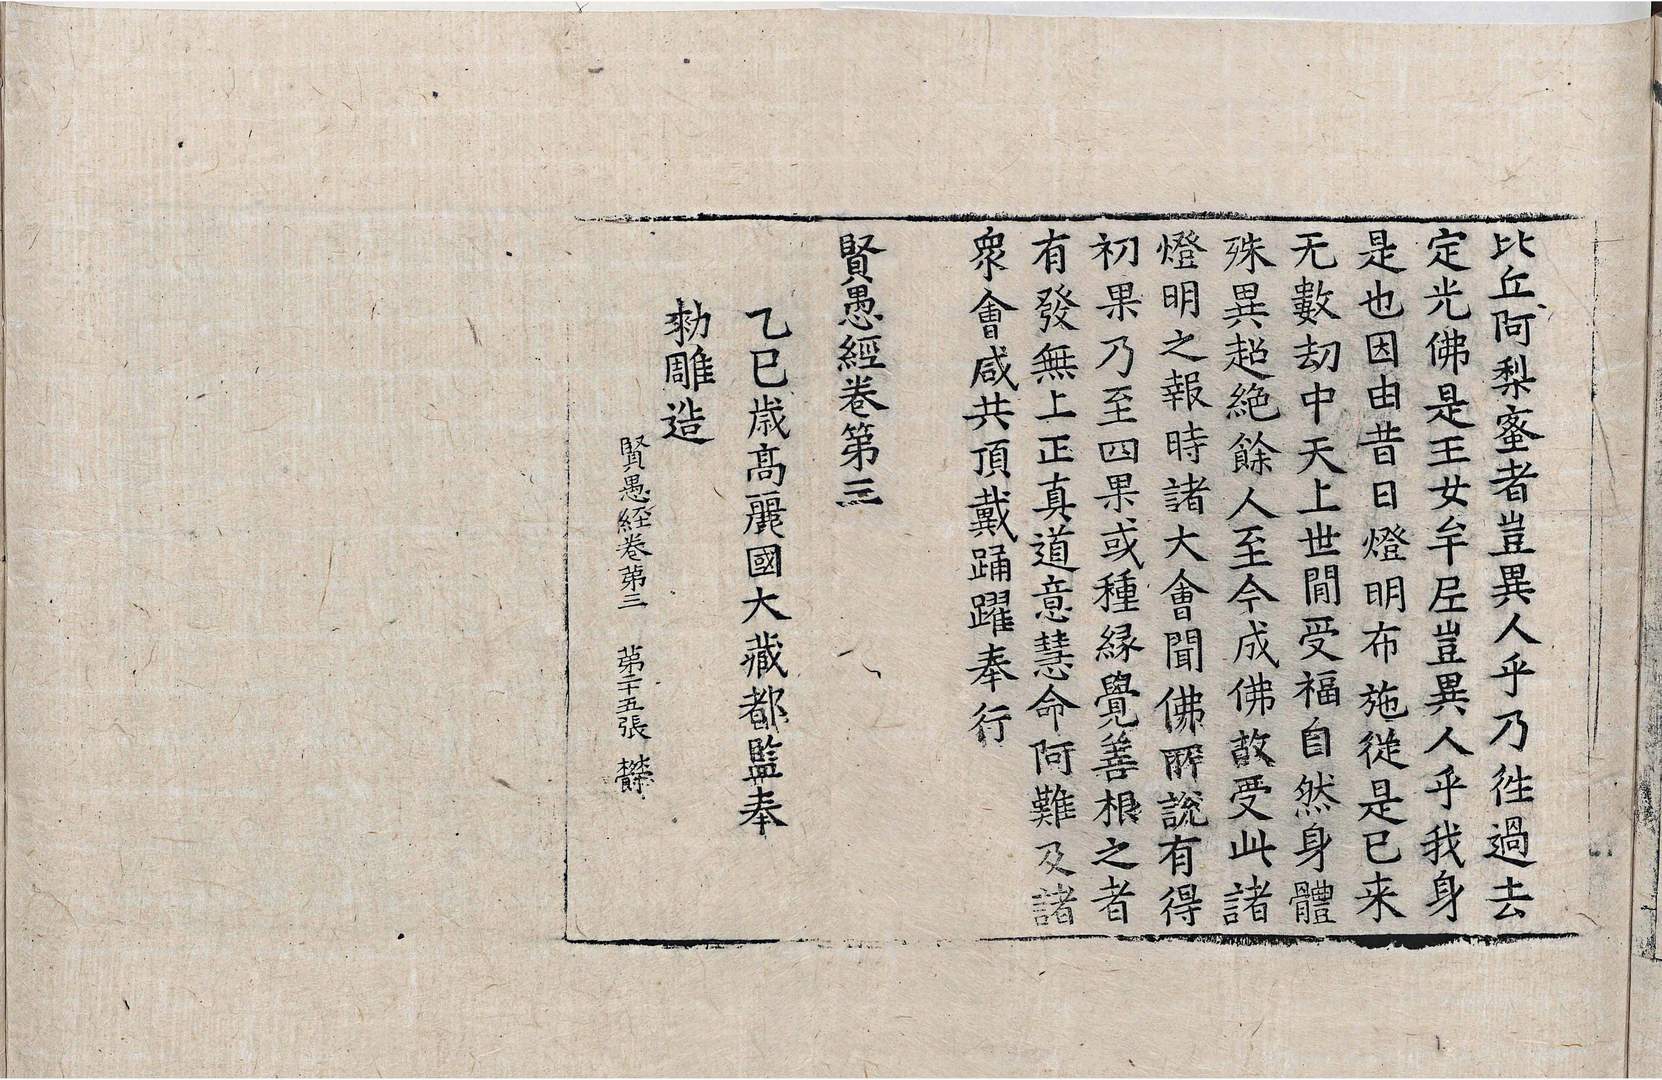 比丘阿梨蜜者豈異人乎乃徃過去
定光佛是王女牟尼豈異人乎我身
是也因由昔日燈明布施從是已来
无數劫中天上世閒受福自然身體
殊異超絶餘人至今成佛故受此諸
燈明之報時諸大會聞佛所說有得
初果乃至四果或種緣覺善根之者
有發無上正真道意慧命阿難及諸
衆會咸共頂戴踊躍奉行
賢愚經卷第三
乙巳歲高麗國大藏都監奉
勑雕造
賢愚経卷第三 第二十五張 欝